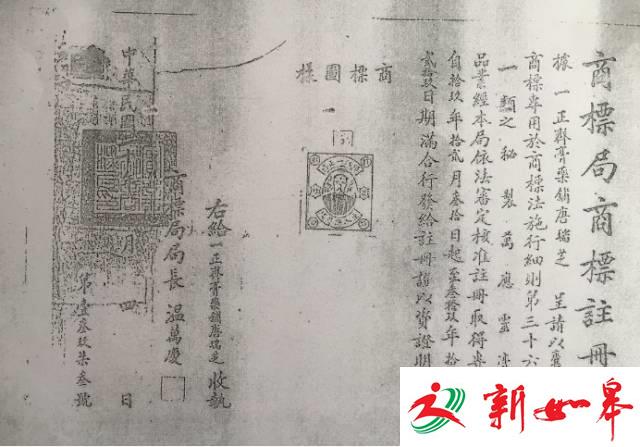 商標局商標註冊
據一正齋膏藥鋪唐瑞芝呈請以
商標專用於商標法施行細則第三十六
一類之秘製萬應靈
品業經本局依法審定核准註冊取得專
自拾玖年拾貳月叁拾日起至叁拾玖年拾
貳拾玖日期滿合行發給註冊證以資證明
商標圖樣
右給一正齋膏藥鋪唐瑞芝收執
商標局局長溫萬慶
中華民國
月四日
第壹叁玖柒叁號
新如皋